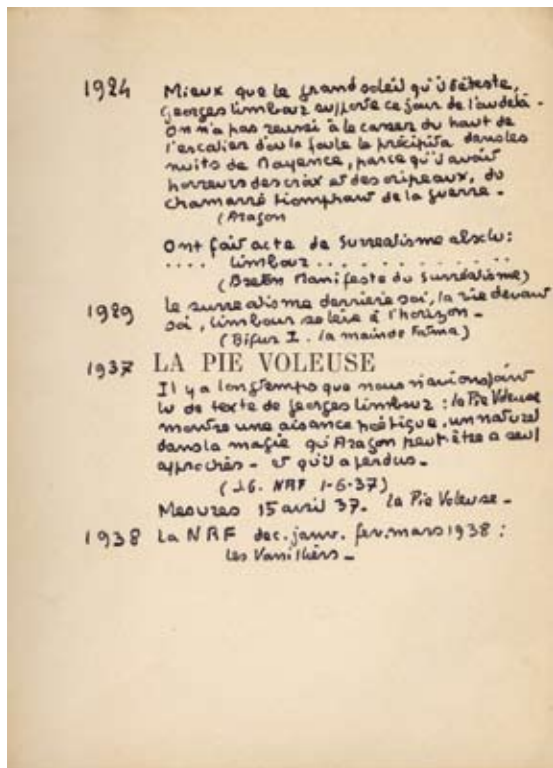 1924 Mieux que le grand soleil qu'il déteste,
Georges Limbour supporte ce jour de l'au delà -
On n'a pas réussi à le casser du haut de
l'escalier d'où la foule le précipita dans les
nuits de Mayence, parce qu'il avait
horreurs des croix et des oripeaux, du
chamarré triomphant de la guerre -
(Aragon
Ont fait acte de Surréalisme absolu:
.... Limbour . . . . . . . . .
(Breton Manifeste du Surréalisme)
1929 le surréalisme derrière soi, la vie devant
soi, Limbour se lève à l'horizon -
(Bifur I. la main de Fatma)
1937 LA PIE VOLEUSE
Il y a longtemps que nous n'avions point
lu de texte de Georges Limbour : la Pie Voleuse
montre une aisance poétique, un naturel
dans la magie qu'Aragon peut être a seul
approchés - et qu'il a perdus -
(J.G. NRF 1-6-37)
Mesures 15 avril 37. La Pie Voleuse -
1938 La NRF dec. janv. fev. mars 1938 :
les Vanilliers -